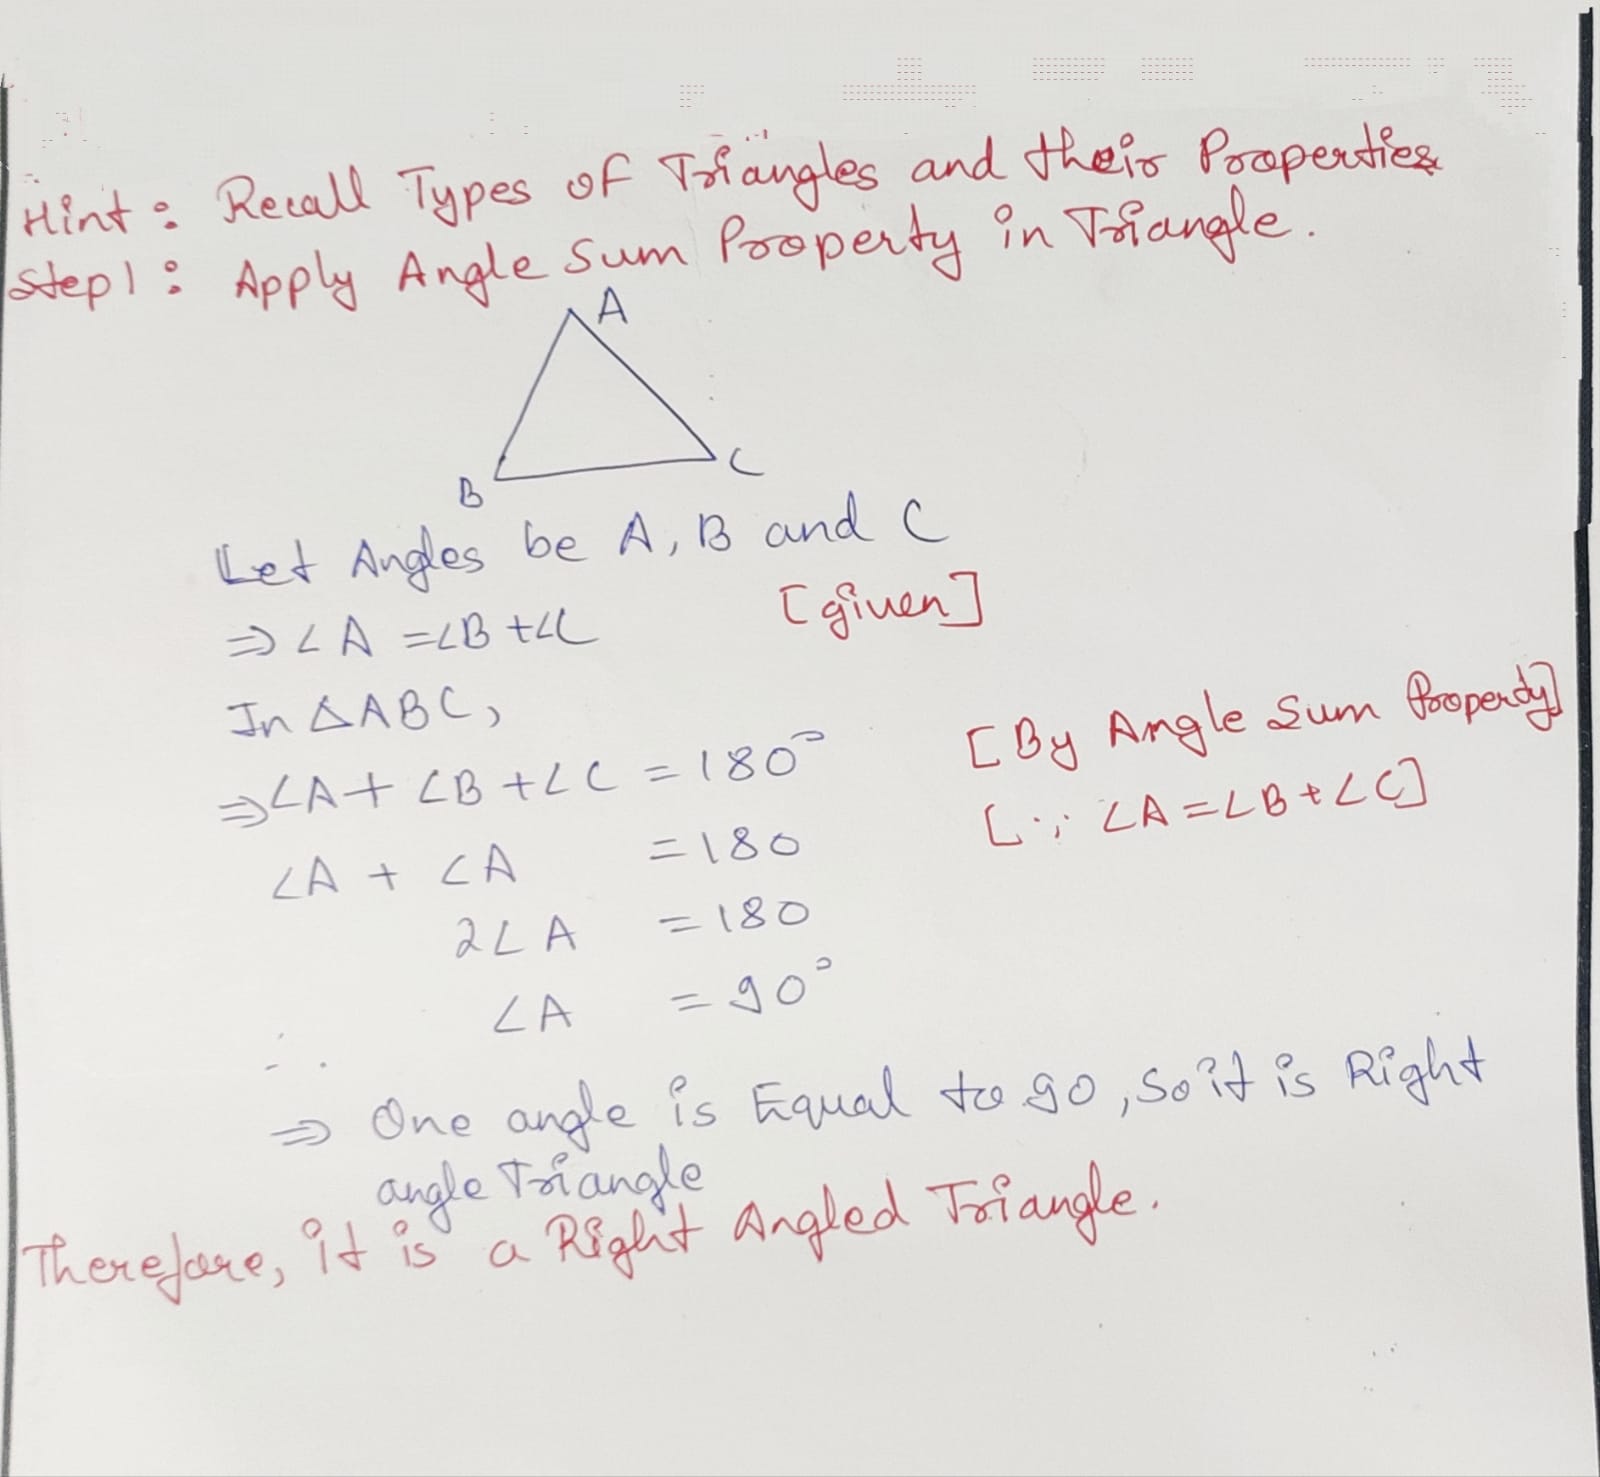 Hint: Recall Types of Triangles and their Properties
Step1: Apply Angle Sum Property in Triangle.
A
B
C
Let Angles be A, B and C
⇒ ∠A = ∠B + ∠C [given]
In △ABC,
⇒ ∠A + ∠B + ∠C = 180° [By Angle Sum Property]
∠A + ∠A = 180 [∵ ∠A = ∠B + ∠C]
2∠A = 180
∠A = 90°
∴
⇒ One angle is Equal to 90, So it is Right
angle Triangle
Therefore, it is a Right Angled Triangle.